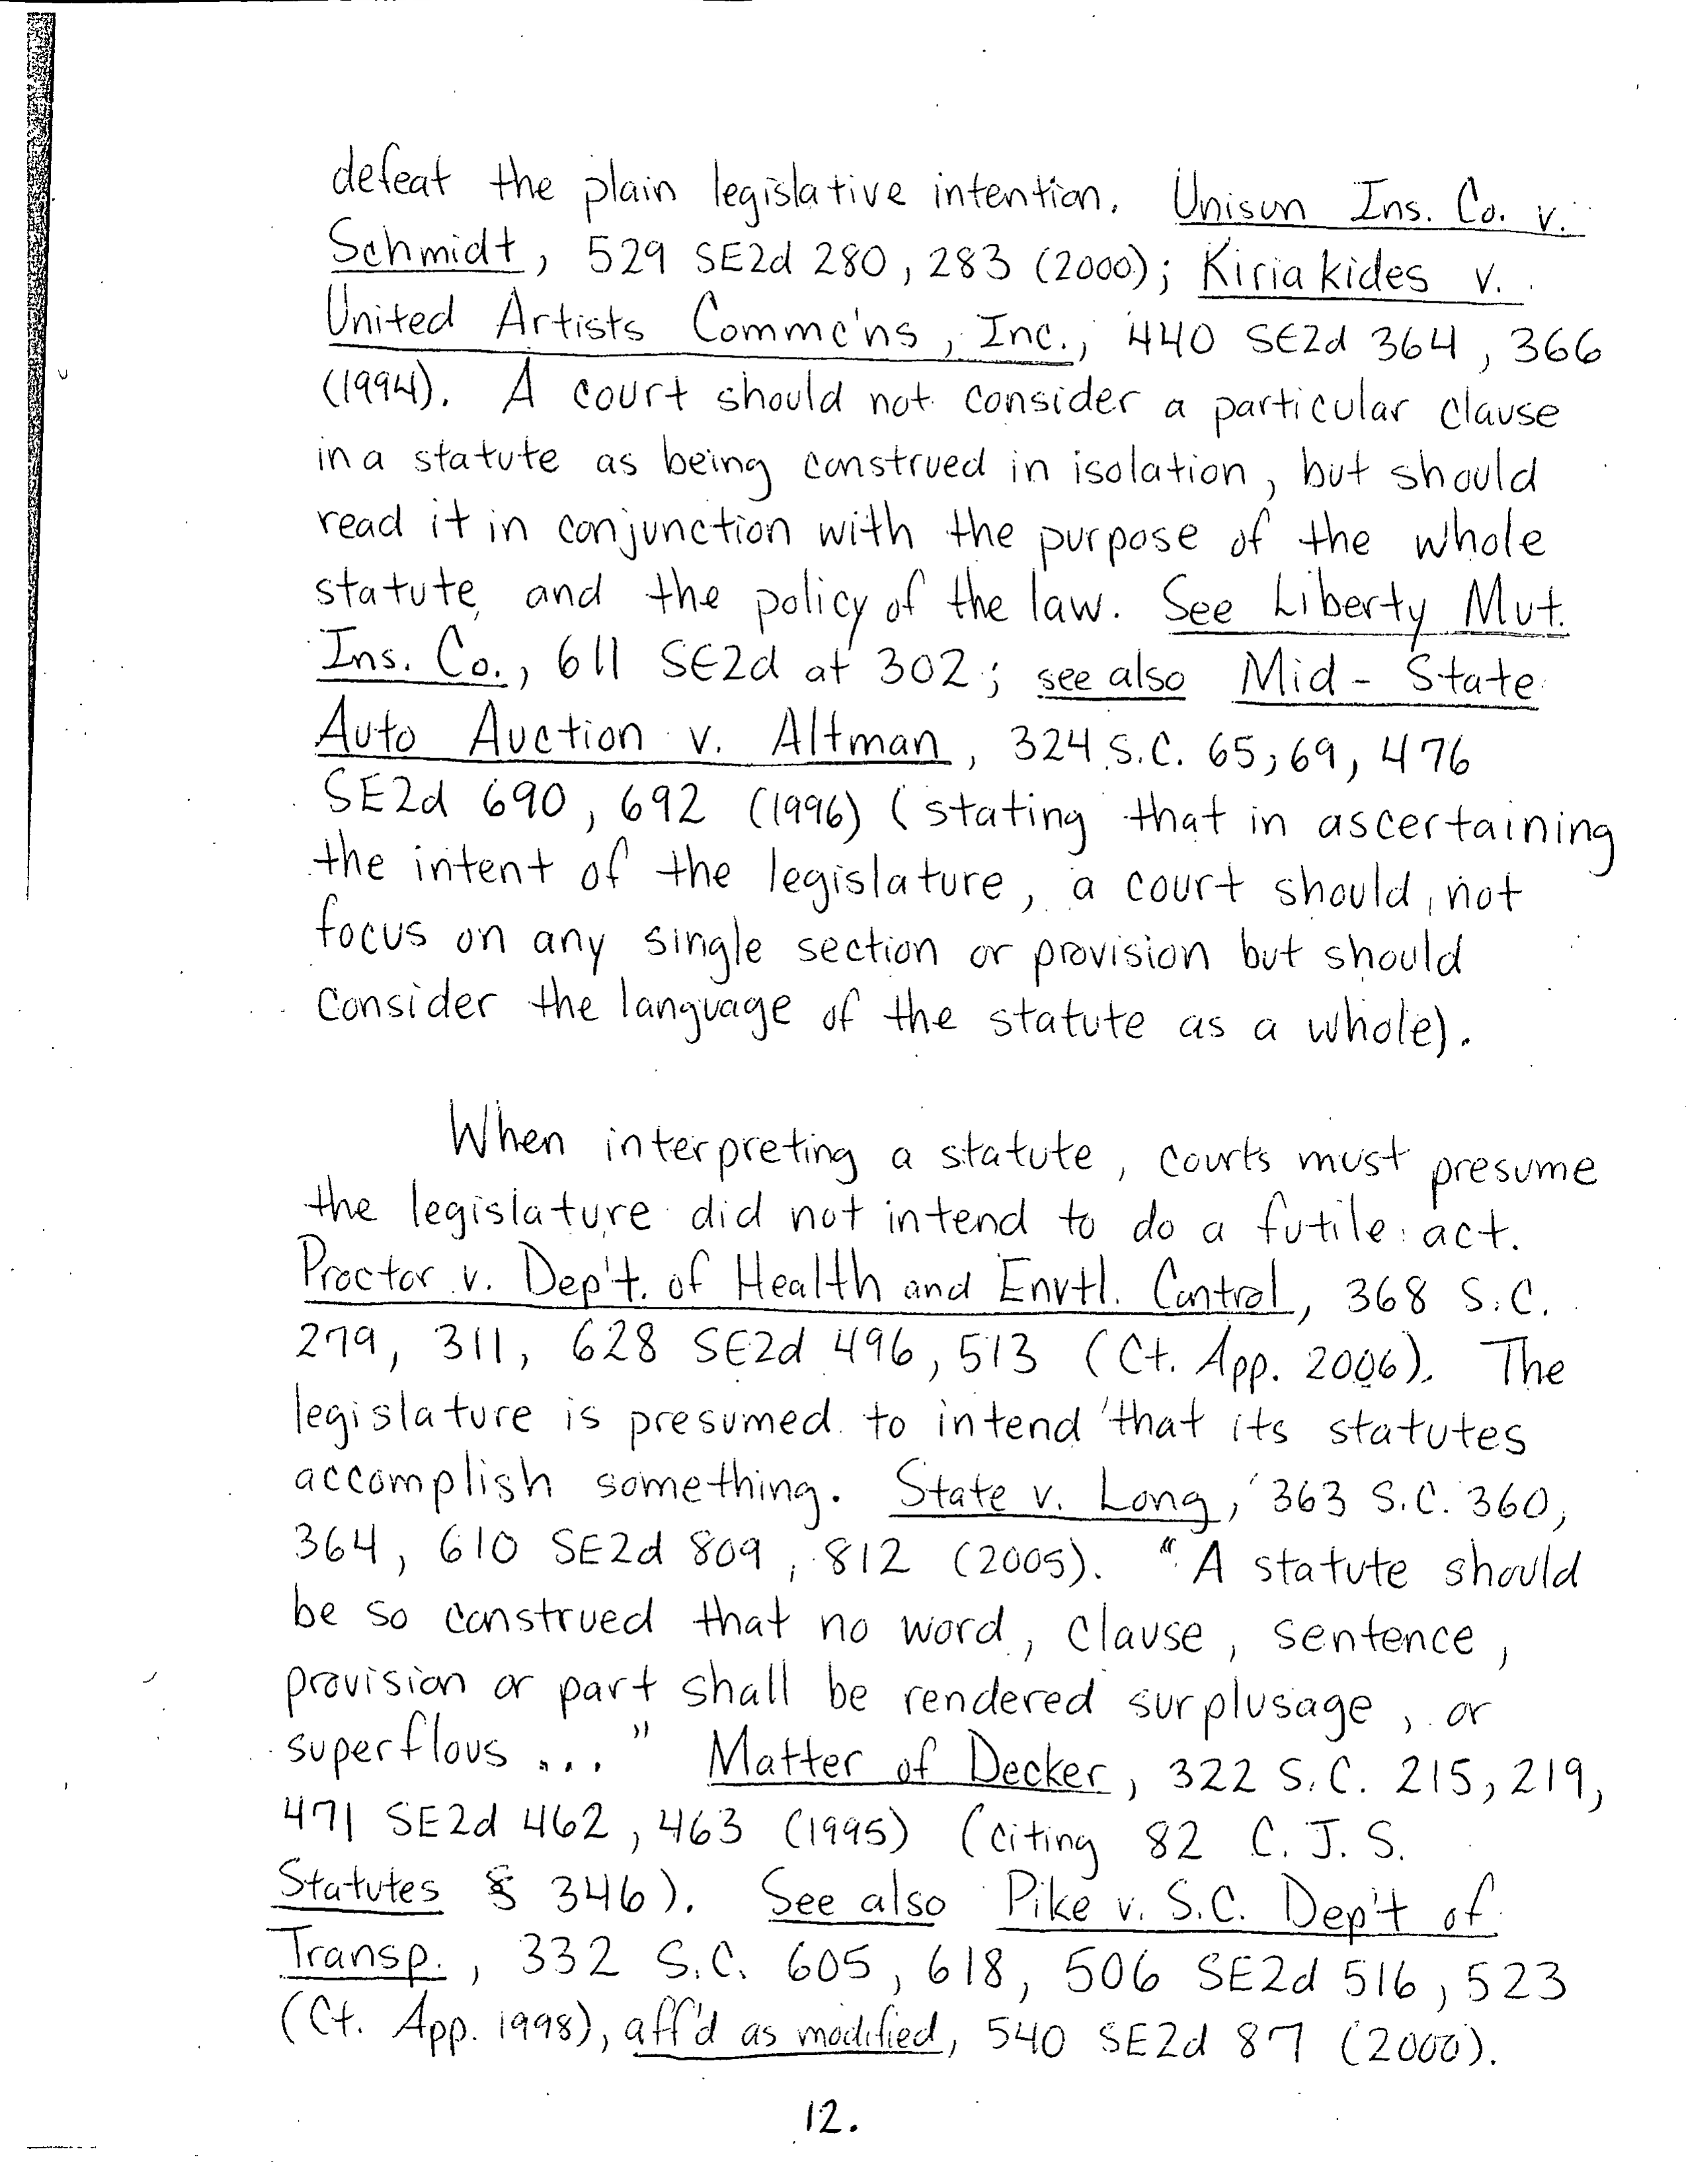 defeat the plain legislative intention. Unisun Ins. Co. v.
Schmidt, 529 SE2d 280, 283 (2000); Kiriakides v.
United Artists Commc'ns, Inc., 440 SE2d 364, 366
(1994). A court should not consider a particular clause
in a statute as being construed in isolation, but should
read it in conjunction with the purpose of the whole
statute and the policy of the law. See Liberty Mut.
Ins. Co., 611 SE2d at 302; see also Mid-State
Auto Auction v. Altman, 324 S.C. 65, 69, 476
SE2d 690, 692 (1996) (stating that in ascertaining
the intent of the legislature, a court should not
focus on any single section or provision but should
consider the language of the statute as a whole).
When interpreting a statute, courts must presume
the legislature did not intend to do a futile act.
Proctor v. Dep't. of Health and Envtl. Control, 368 S.C.
279, 311, 628 SE2d 496, 513 (Ct. App. 2006). The
legislature is presumed to intend that its statutes
accomplish something. State v. Long, 363 S.C. 360,
364, 610 SE2d 809, 812 (2005). "A statute should
be so construed that no word, clause, sentence,
provision or part shall be rendered surplusage, or
superflous ..." Matter of Decker, 322 S.C. 215, 219,
471 SE2d 462, 463 (1995) (citing 82 C.J.S.
Statutes § 346). See also Pike v. S.C. Dep't of
Transp., 332 S.C. 605, 618, 506 SE2d 516, 523
(Ct. App. 1998), aff'd as modified, 540 SE2d 87 (2000).
12.